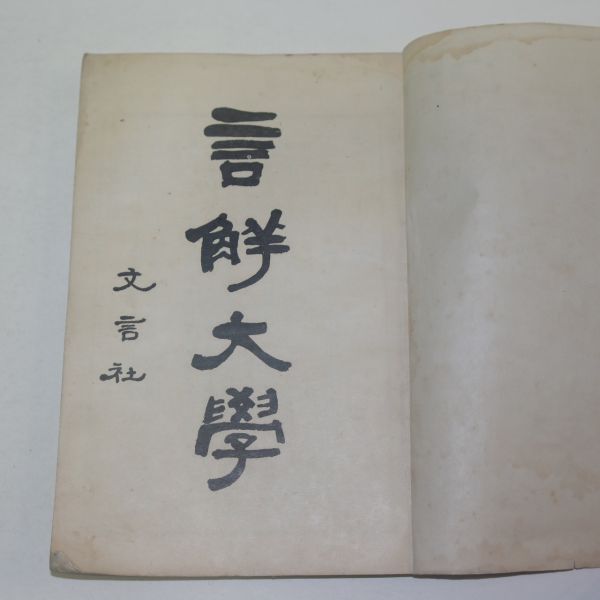 言解大學
文言社